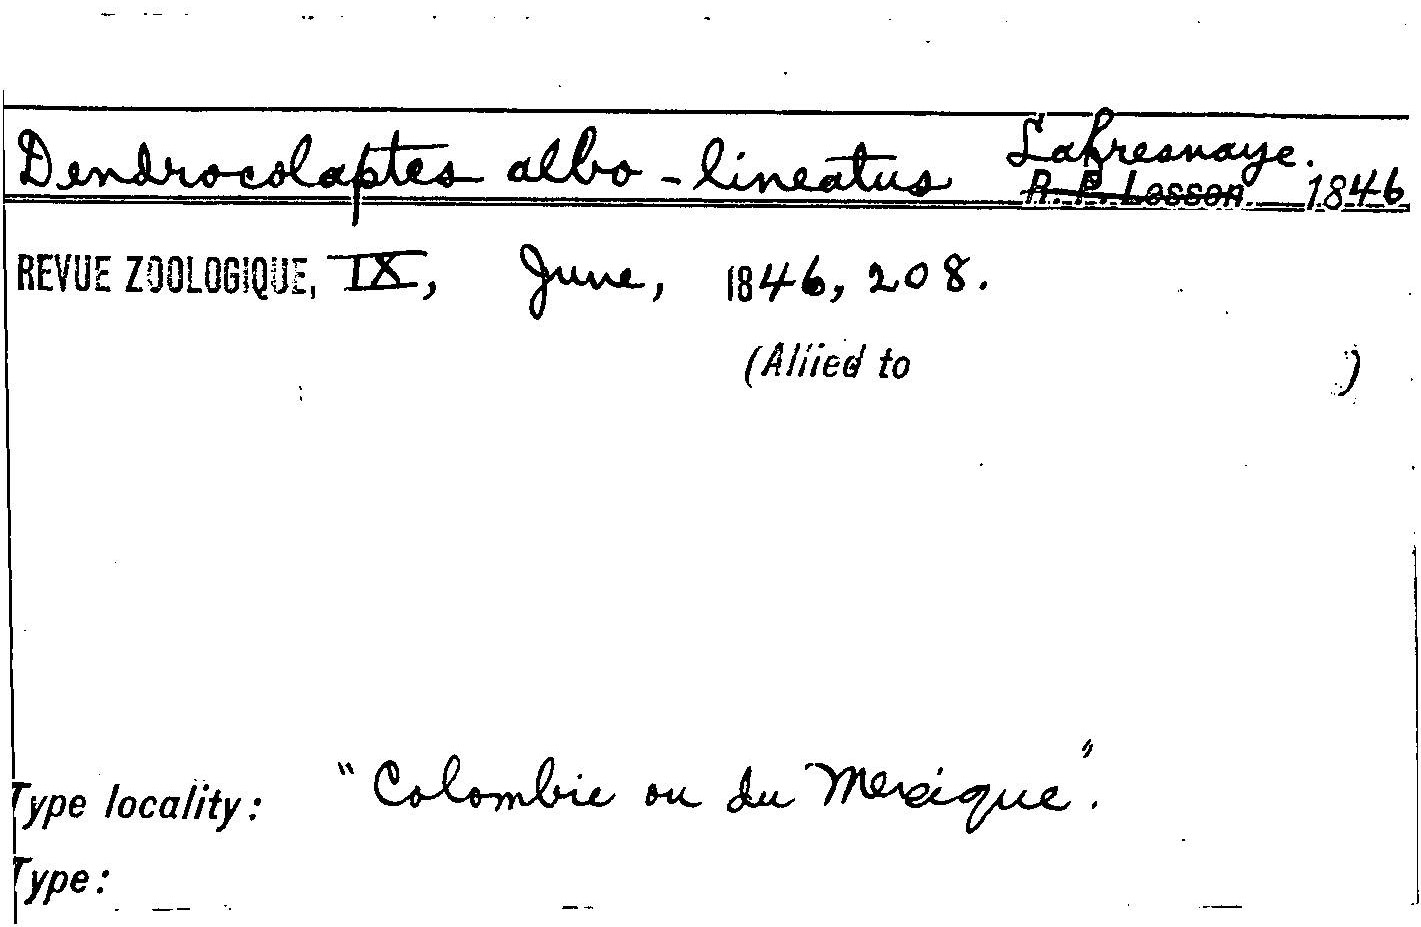 Dendrocolaptes albo-lineatus Lafresnaye.
R. P. Lesson 1846
REVUE ZOOLOGIQUE, IX, June, 1846, 208.
(Allied to )
Type locality: "Colombie ou du Mexique".
Type: